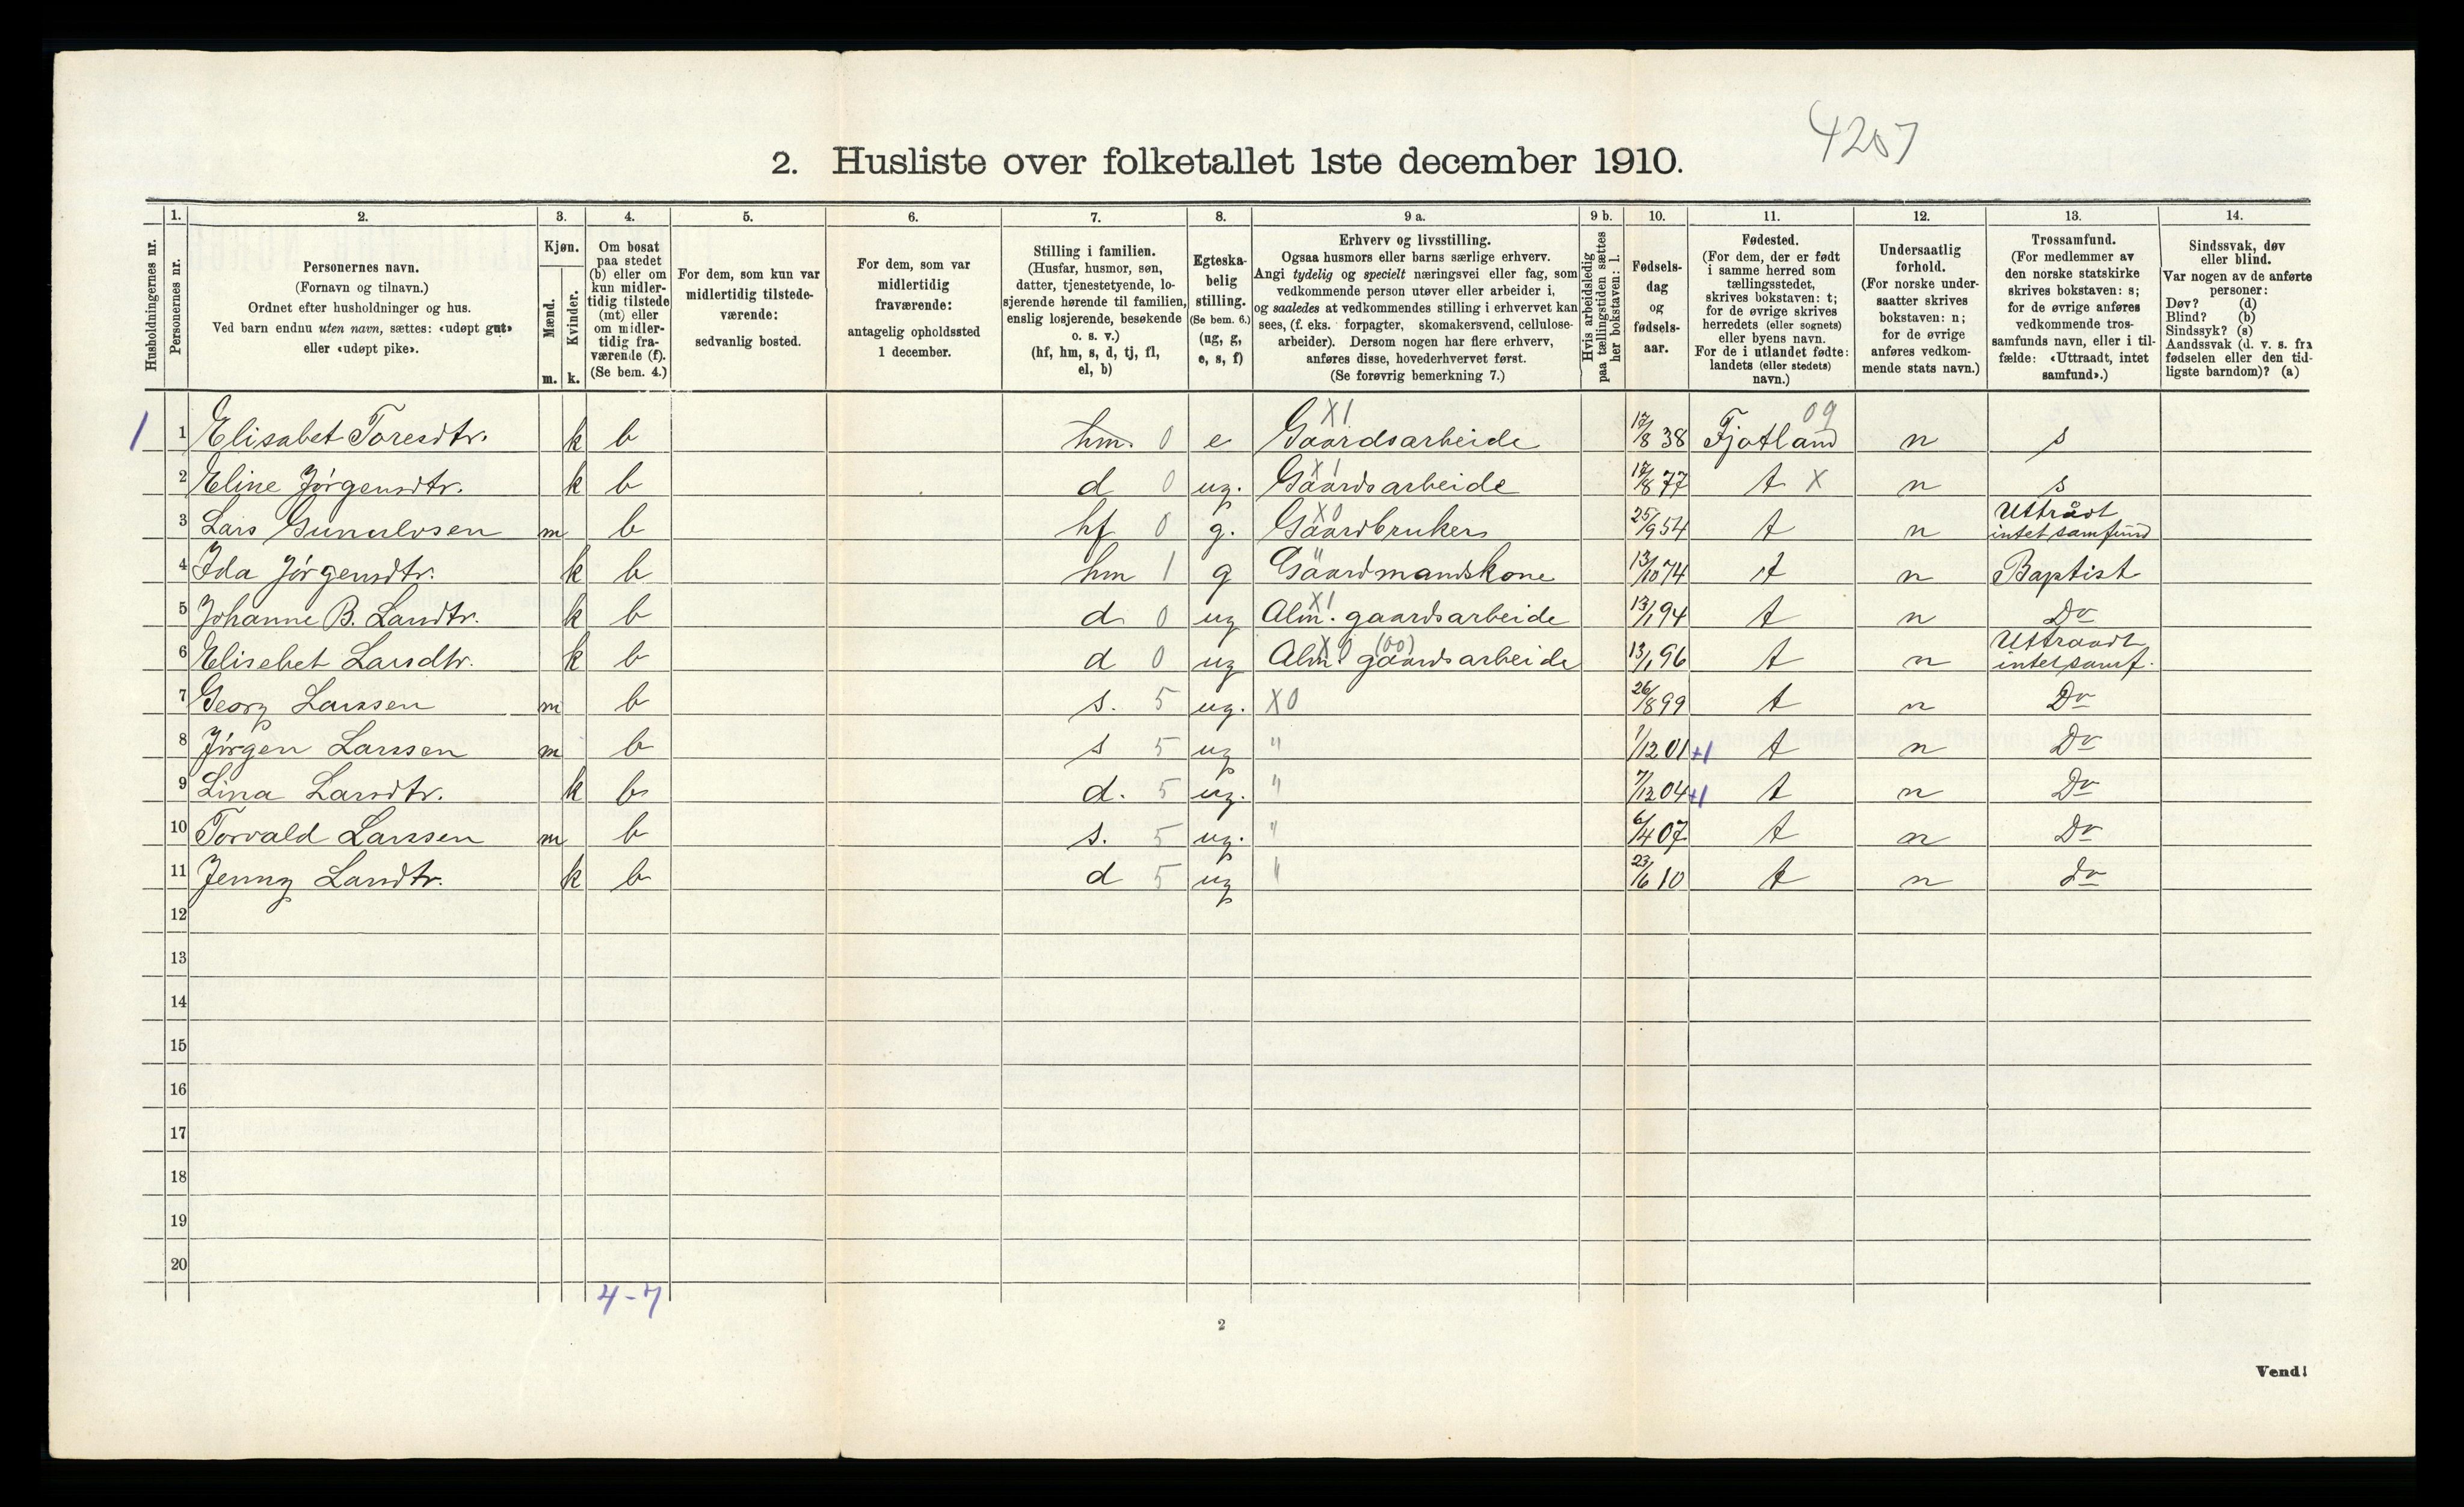 4207
2. Husliste over folketallet 1ste december 1910.
Husholdningernes nr.
1.
Personernes nr.
2.
Personernes navn.
(Fornavn og tilnavn.)
Ordnet efter husholdninger og hus.
Ved barn endnu uten navn, sættes: «udøpt gut»
eller «udøpt pike».
3.
Kjøn.
Mænd.
Kvinder.
m. k.
4.
Om bosat
paa stedet
(b) eller om
kun midler-
tidig tilstede
(mt) eller
om midler-
tidig fra-
værende (f).
(Se bem. 4.)
5.
For dem, som kun var
midlertidig tilstede-
værende:
sedvanlig bosted.
6.
For dem, som var
midlertidig
fraværende:
antagelig opholdssted
1 december.
7.
Stilling i familien.
(Husfar, husmor, søn,
datter, tjenestetyende, lo-
sjerende hørende til familien,
enslig losjerende, besøkende
o. s. v.)
(hf, hm, s, d, tj, fl,
el, b)
8.
Egteska-
belig
stilling.
(Se bem. 6.)
(ug, g,
e, s, f)
9 a.
Erhverv og livsstilling.
Ogsaa husmors eller barns særlige erhverv.
Angi tydelig og specielt næringsvei eller fag, som
vedkommende person utøver eller arbeider i,
og saaledes at vedkommendes stilling i erhvervet kan
sees, (f. eks. forpagter, skomakersvend, cellulose-
arbeider). Dersom nogen har flere erhverv,
anføres disse, hovederhvervet først.
(Se forøvrig bemerkning 7.)
9 b.
Hvis arbeidsledig
paa tællingstiden sættes
her bokstaven: l.
10.
Fødsels-
dag
og
fødsels-
aar.
11.
Fødested.
(For dem, der er født
i samme herred som
tællingsstedet,
skrives bokstaven: t;
for de øvrige skrives
herredets (eller sognets)
eller byens navn.
For de i utlandet fødte:
landets (eller stedets)
navn.)
12.
Undersaatlig
forhold.
(For norske under-
saatter skrives
bokstaven: n;
for de øvrige
anføres vedkom-
mende stats navn.)
13.
Trossamfund.
(For medlemmer av
den norske statskirke
skrives bokstaven: s;
for de øvrige anføres
vedkommende tros-
samfunds navn, eller i til-
fælde: «Uttraadt, intet
samfund».)
14.
Sindssvak, døv
eller blind.
Var nogen av de anførte
personer:
Døv? (d)
Blind? (b)
Sindssyk? (s)
Aandssvak (d. v. s. fra
fødselen eller den tid-
ligste barndom)? (a)
X1 09
1 1 Elisabet Toresdtr. k b hm. 0 e Gaardsarbeide 17/8 38 Fjotland n s
X1
2 Eline Jørgensdtr. k b d 0 ug. Gaardsarbeide 17/8 77 t X n s
X0 Uttrådt
3 Lars Gunulvsen m b hf 0 g. Gaardbruker 25/9 54 t n intet samfund
"
4 Ida Jørgensdtr. k b hm 1 g Gaardmandskone 13/10 74 t n Baptist
X1
5 Johanne B. Larsdtr. k b d 0 ug Alm. gaardsarbeide 13/1 94 t n Do
X0 (00) Uttraadt
6 Elisebet Larsdtr. k b d 0 ug Alm. gaardsarbeide 13/1 96 t n intet samf.
7 Georg Larssen m b s. 5 ug. X0 26/8 99 t n Do
8 Jørgen Larssen m b s 5 ug " 1/12 01 +1 t n Do
9 Lina Larsdtr. k b d. 5 ug. " 7/12 04 +1 t n Do
10 Torvald Larssen m b s. 5 ug. " 6/4 07 t n Do
11 Jenny Larsdtr. k b d 5 ug " 23/6 10 t n do
12
13
14
15
16
17
18
19
20
4-7
2
Vend!